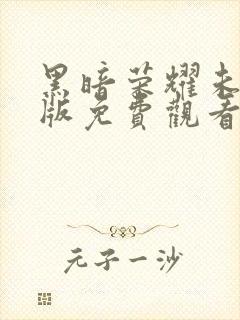 黑暗荣耀未
版免費觀看
元子一沙